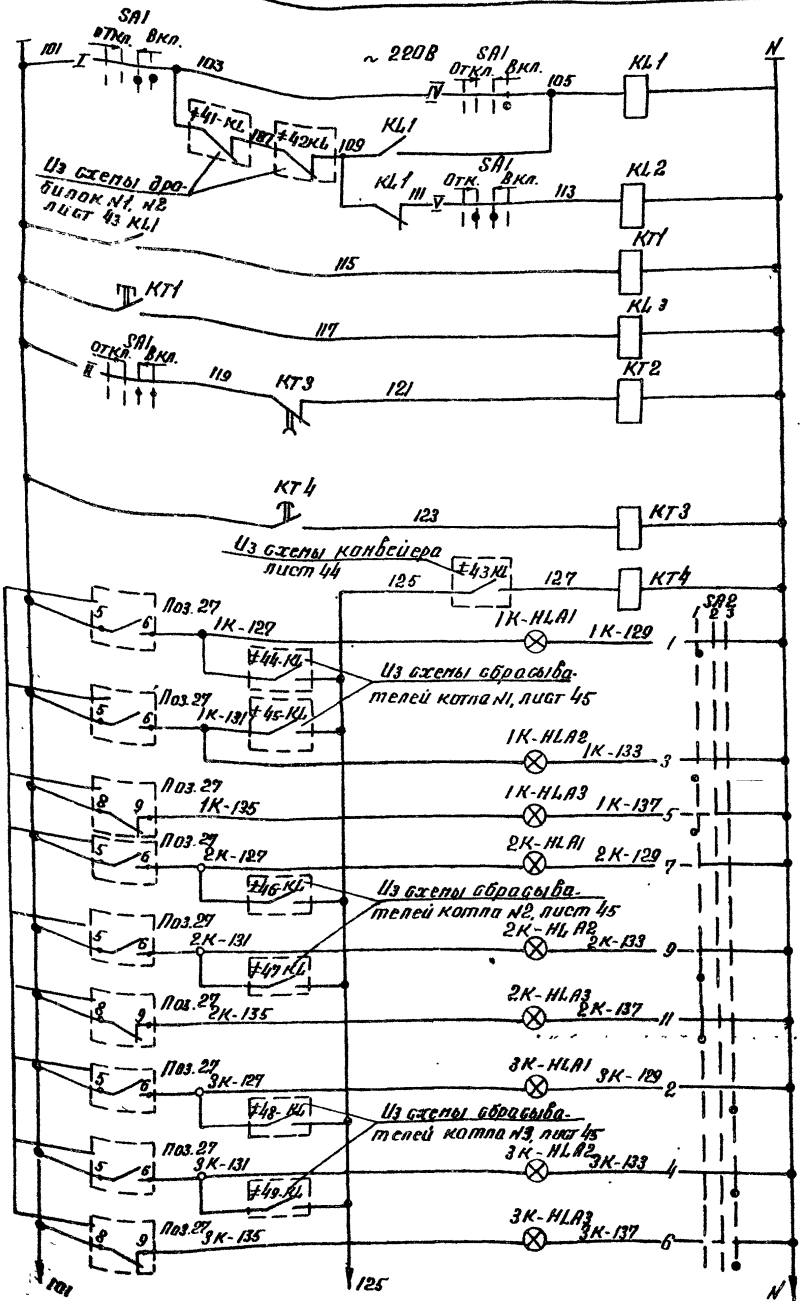 SA1
ОТКЛ. ВКЛ.
101
I
103
~ 220В
SA1
ОТКЛ. ВКЛ.
IV
105
KL1
N
≠41-KL
187
≠42KL
109
KL1
Из схемы дро-
билок N1, N2
лист 43
KL1
KL1
111
V
SA1
ОТК. ВКЛ.
113
KL2
115
KT1
KT1
117
KL3
SA1
ОТКЛ. ВКЛ.
II
119
KT3
121
KT2
KT4
123
KT3
Из схемы конвейера
лист 44
125
≠43KL
127
KT4
SA2
1 2 3
Поз.27
5 6
1К-127
1К-HLA1
1К-129
1
≠44-KL
Из схемы сбрасыва-
телей котла N1, лист 45
Поз.27
5 6
1К-131
≠45-KL
1К-HLA2
1К-133
3
Поз.27
8 9
1К-135
1К-HLA3
1К-137
5
Поз.27
5 6
2К-127
2К-HLA1
2К-129
7
≠46-KL
Из схемы сбрасыва-
телей котла N2, лист 45
Поз.27
5 6
2К-131
2К-HLA2
2К-133
9
≠47-KL
Поз.27
8 9
2К-135
2К-HLA3
2К-137
11
Поз.27
5 6
3К-127
3К-HLA1
3К-129
2
≠48-KL
Из схемы сбрасыва-
телей котла N3, лист 45
Поз.27
5 6
3К-131
3К-HLA2
3К-133
4
≠49-KL
Поз.27
8 9
3К-135
3К-HLA3
3К-137
6
101
125
N